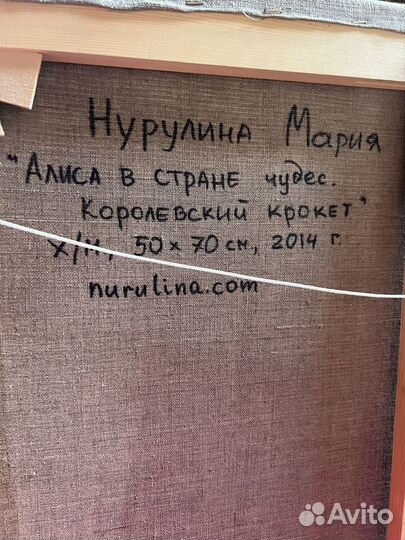 Нурулина Мария
"Алиса в стране чудес.
Королевский крокет"
х/м, 50 х 70 см, 2014 г.
nurulina.com
Avito